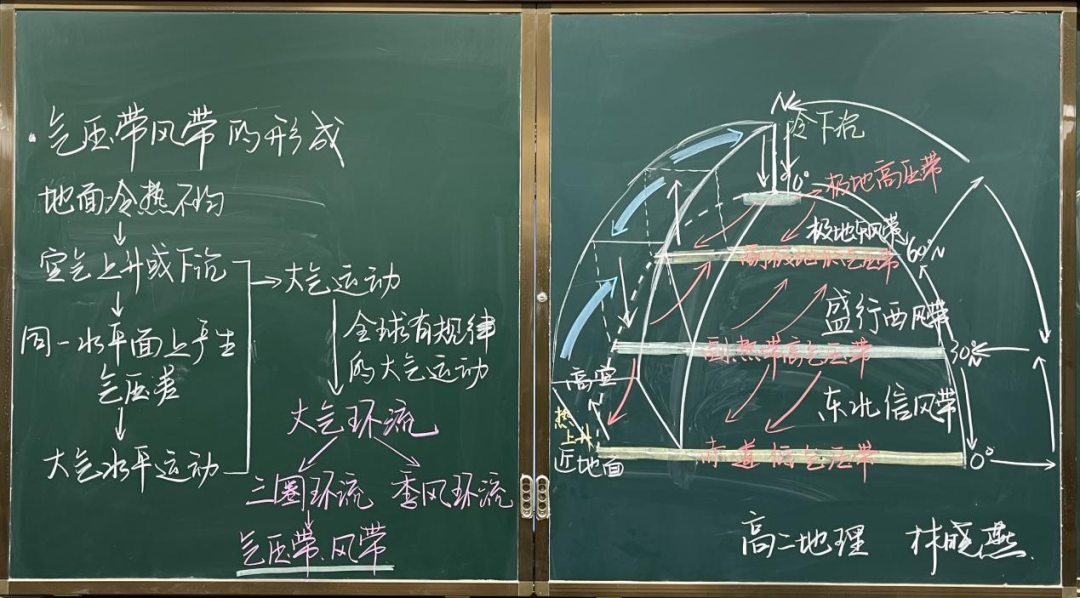 气压带风带的形成
地面冷热不均
空气上升或下沉
同一水平面上产生
气压差
大气水平运动
大气运动
全球有规律
的大气运动
大气环流
三圈环流 季风环流
气压带、风带
N
冷下沉
极地高压带
极地东风带
60°N
副极地低气压带
盛行西风带
副热带高气压带
30°N
高空
东北信风带
热上升
近地面
赤道低气压带
0°
高二地理 林晓燕